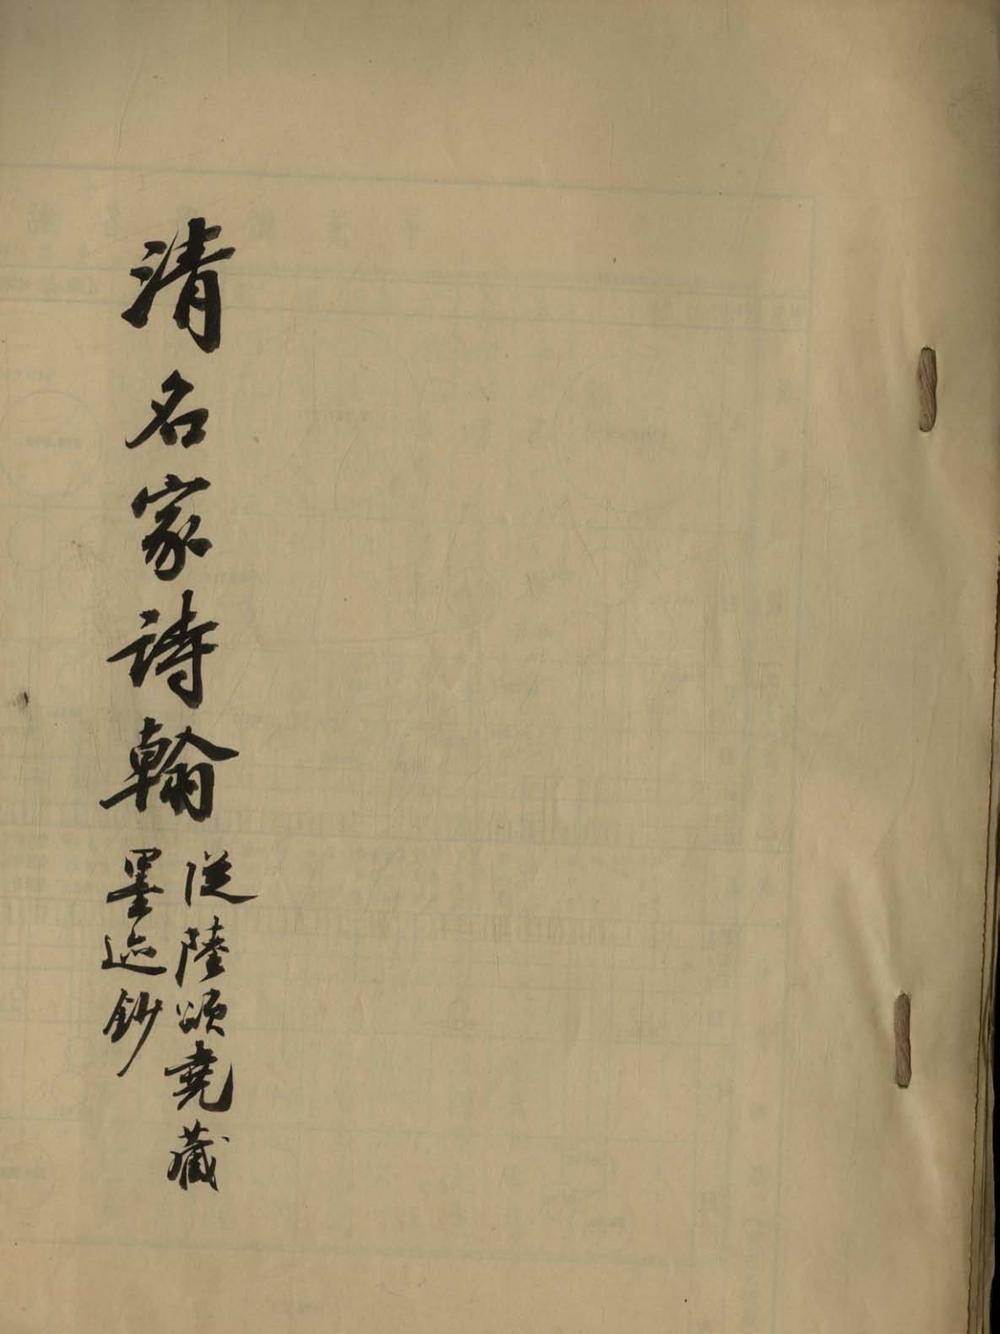 清名家詩翰
從陸頌堯藏
墨迹鈔